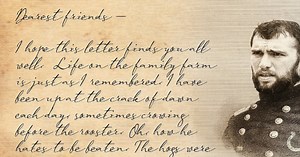 Dearest friends —
I hope this letter finds you all
well. Life on the family farm
is just as I remembered. I have
been up at the crack of dawn
each day, sometimes crowing
before the rooster. Oh, how he
hates to be beaten. The hogs were